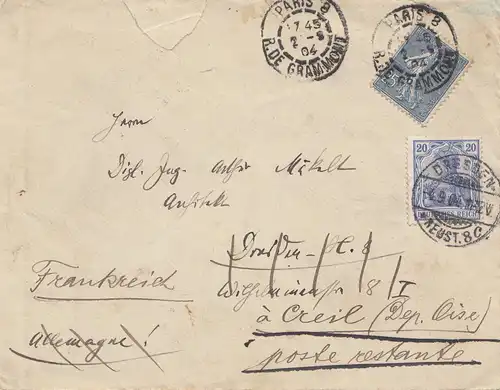 PARIS 8
17 45
2 - 9
04
R. DE GRAMMONT
PARIS 8
04
R. DE GRAMMONT
20 20
DEUTSCHES REICH
DRESDEN
NEUST. 8
Herrn
Dipl. Ing. Arthur Mäkelt
Dresden-N. 8
Wilhelminenstr 8 I
Frankreich
à Creil (Dep. Oise)
Allemagne!
poste restante